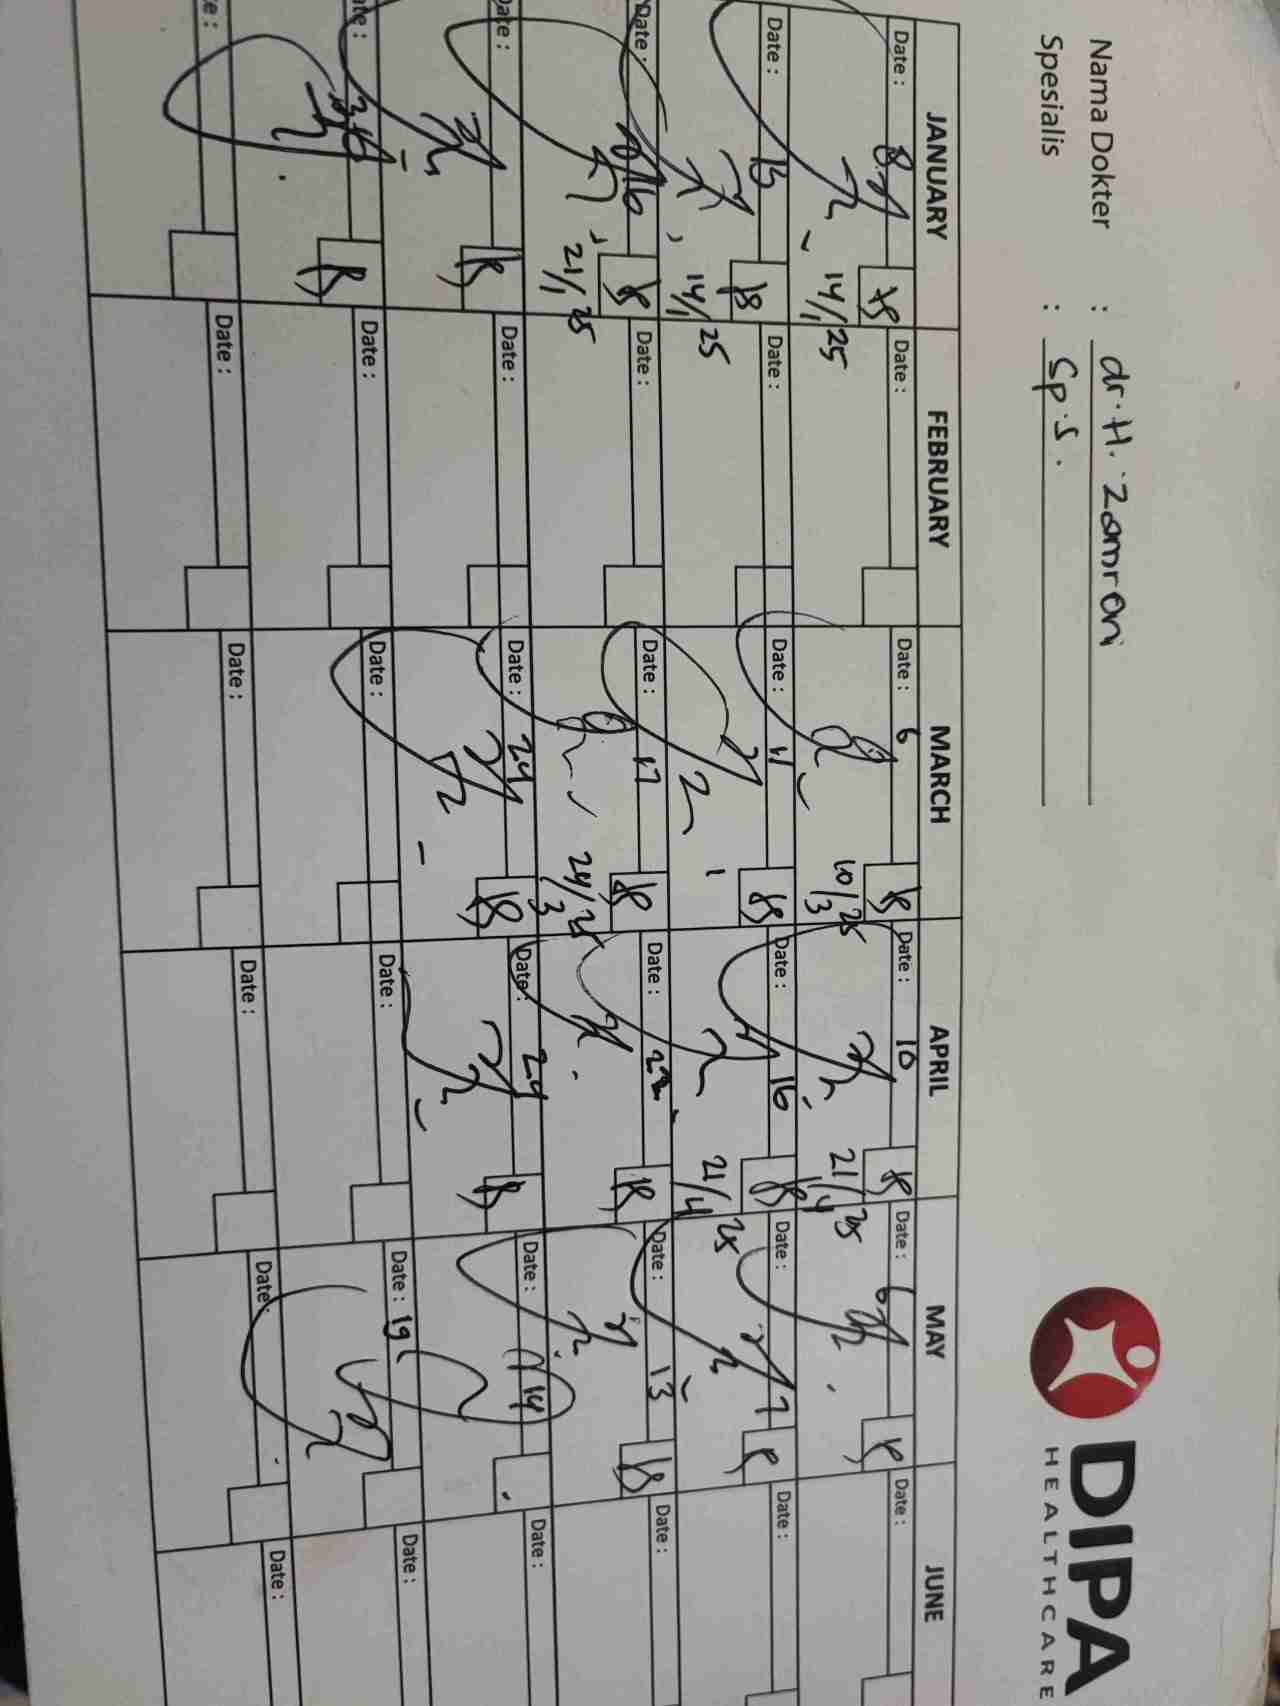 DIPA
HEALTHCARE
Nama Dokter : dr. H. Zamroni
Spesialis : Sp.S.
JANUARY FEBRUARY MARCH APRIL MAY JUNE
Date : 8 Date : Date : 6 Date : 10 Date : 6 Date :
14/1 25 10/3 25 21/4 25
Date : 13 Date : Date : 11 Date : 16 Date : 7 Date :
14/1 25 21/4 25
Date : 16 Date : Date : 17 Date : 22 Date : 13 Date :
21/1 25 24/3 25
Date : Date : Date : 24 Date : 24 Date : 14 Date :
Date : Date : Date : Date : Date : 19 Date :
Date : Date : Date : Date : Date :